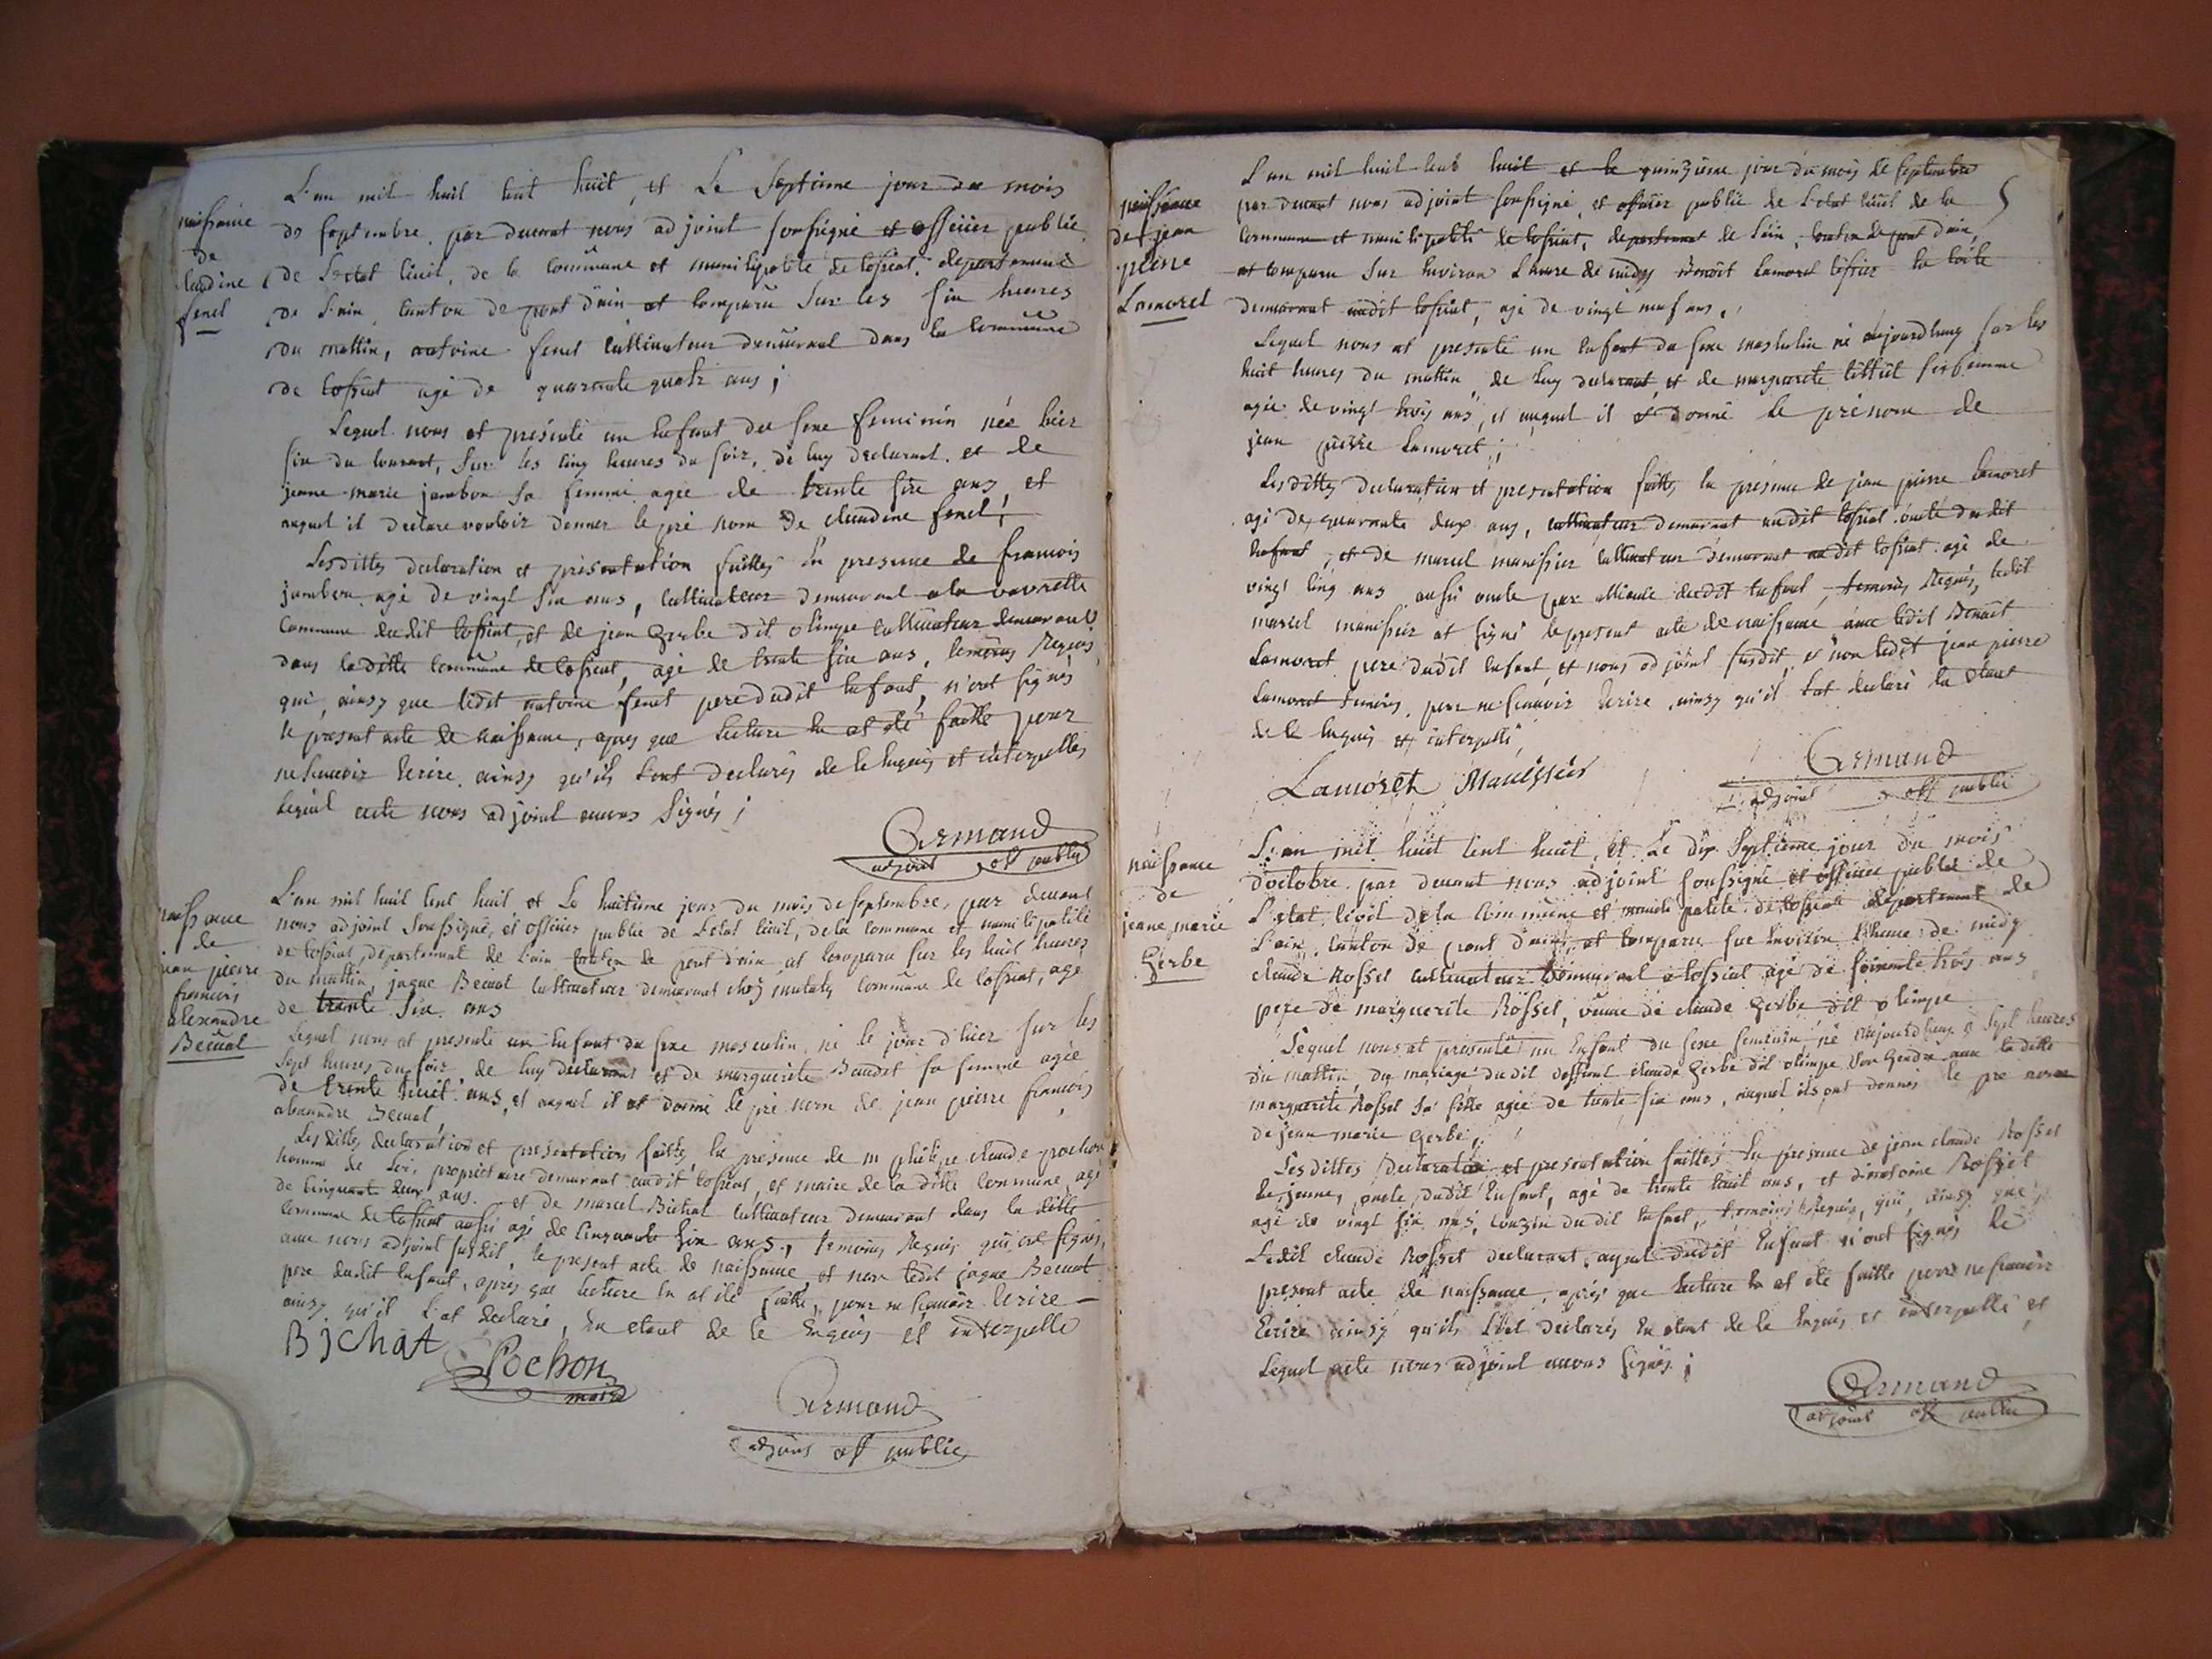 naissance
de
claudine
fenet
L'an mil huit cent huit, et Le Septieme jour du mois
de septembre, par devant nous adjoint soussigné et officier public
de L'etat civil, de la commune et municipalité de tossiat, departement
de L'ain, canton de pont d'ain at comparu Sur les six heures
du mattin, antoine fenet cultivateur demeurant dans la commune
de tossiat agé de quarante quatre ans;
Lequel nous at présenté un enfant du sexe feminin née hier
six du courant, Sur les cinq heures du soir, de luy declarant et de
jeanne marie jambon sa femme agée de trente six ans, et
auquel il declare vouloir donner le pré nom de claudine fenet;
Lesdittes declaration et présentation faittes En presence de francois
jambon agé de vingt six ans, cultivateur demeurant a la vavrette
commune dudit tossiat, et de jean gerbe dit olimpe cultivateur demeurant
dans laditte commune de tossiat, agé de trente six ans, temoins Requis
qui, ainsy que ledit antoine fenet pere dudit enfant, n'ont signés
le present acte de naissance, apres que lecture en at eté faitte pour
ne scavoir Ecrire ainsy qu'ils L'ont declarés de ce Enquis et interpellés
lequel acte nous adjoint avons Signés;
Armand
adjoint off public
naissance
de
jean pierre
francois
alexandre
Becuat
L'an mil huit cent huit et Le huitieme jour du mois de septembre, par devant
nous adjoint Soussigné, et officier public de L'etat civil, de la commune et municipalité
de tossiat, departement de L'ain Canton de pont d'ain at comparu sur les huit heures
du mattin, jaque Becuat cultivateur demeurant chez mutaty commune de tossiat, agé
de trente six ans
Lequel nous at presenté un Enfant du sexe masculin, né le jour d'hier sur les
Sept heures du soir de luy declarant et de marguerite Baudet sa femme agée
de trente huit ans, et auquel il at donné le pré nom de jean pierre francois
alexandre Becuat,
Les dittes declaration et presentation faittes En presence de m philipe claude pochon
homme de Loi, propriétaire demeurant audit tossiat, et maire de la ditte commune, agé
de cinquante deux ans. et de marcel Bichat cultivateur demeurant dans la ditte
commune de tossiat aussi agé de cinquante six ans, temoins Requis qui ont signés,
avec nous adjoint susdit le present acte de naissance, et non ledit jaque Becuat
pere dudit Enfant, après que lecture En at eté faitte, pour ne scavoir Ecrire
ainsy qu'il L'at declaré, En etant de ce Enquis et interpellé
BjChAt
Pochon
maire
Armand
adjoint off public
naissance
de jean
pierre
Lamoret
L'an mil huit cent huit et le quinzieme jour du mois de septembre
par devant nous adjoint soussigné, et officier public de L'etat civil de la
commune et municipalité de tossiat, departement de L'ain, canton de pont d'ain,
at comparu Sur Environ L'heure de midy Benoit Lamoret tissier En toile
demeurant audit tossiat, agé de vingt neuf ans,
Lequel nous at presenté un Enfant du sexe masculin né aujourdhuy sur les
huit heures du mattin de luy declarant, et de marguerite sa femme
agée de vingt trois ans, et auquel il at donné le prénom de
jean pierre Lamoret;
Lesdittes declaration et presentation faittes En présence de jean pierre Lamoret
agé de quarante deux ans, cultivateur demeurant audit tossiat oncle dudit
Enfant, et de marcel manissier cultivateur demeurant audit tossiat agé de
vingt cinq ans aussi oncle par alliance dudit Enfant, temoins Requis, ledit
marcel manissier at signé le present acte de naissance avec ledit Benoit
Lamoret pere dudit Enfant, et nous adjoint susdit, et non ledit jean pierre
Lamoret temoins, pour ne scavoir Ecrire, ainsy qu'il L'at declaré En etant
de ce Enquis et interpellé,
Lamoret Manissier
Armand
adjoint off public
naissance
de
jeane marie
Gerbe
L'an mil huit cent huit, et Le dix Septieme jour du mois
d'octobre par devant nous adjoint soussigné et officier public de
L'etat civil de la Commune et municipalité de tossiat departement de
L'ain, canton de pont d'ain, at comparu sur Environ L'heure de midy
claude Rosset cultivateur demeurant a tossiat agé de soixante trois ans
pere de marguerite Rosset, veuve de claude gerbe dit olimpe
Lequel nous at presenté un Enfant du sexe feminin né aujourdhuy a Sept heures
du mattin, du mariage dudit deffunt claude gerbe dit olimpe Son Gendre avec laditte
marguerite Rosset sa fille agée de trente six ans, auquel ils ont donnés le pre nom
de jeane marie gerbe,
Lesdittes declaration et presentation faittes En presence de jean claude Rosset
le jeune, oncle dudit Enfant, agé de trente huit ans, et d'antoine Rosset
agé de vingt six ans, couzin dudit Enfant, temoins Requis, qui, ainsy que
Ledit claude Rosset declarant, ayeul dudit Enfant n'ont signés le
present acte de naissance, après que lecture En at eté faitte pour ne scavoir
Ecrire ainsy qu'ils L'ont declarés En etant de ce Enquis et interpellé et
Lequel acte nous adjoint avons signés;
Armand
adjoint off public